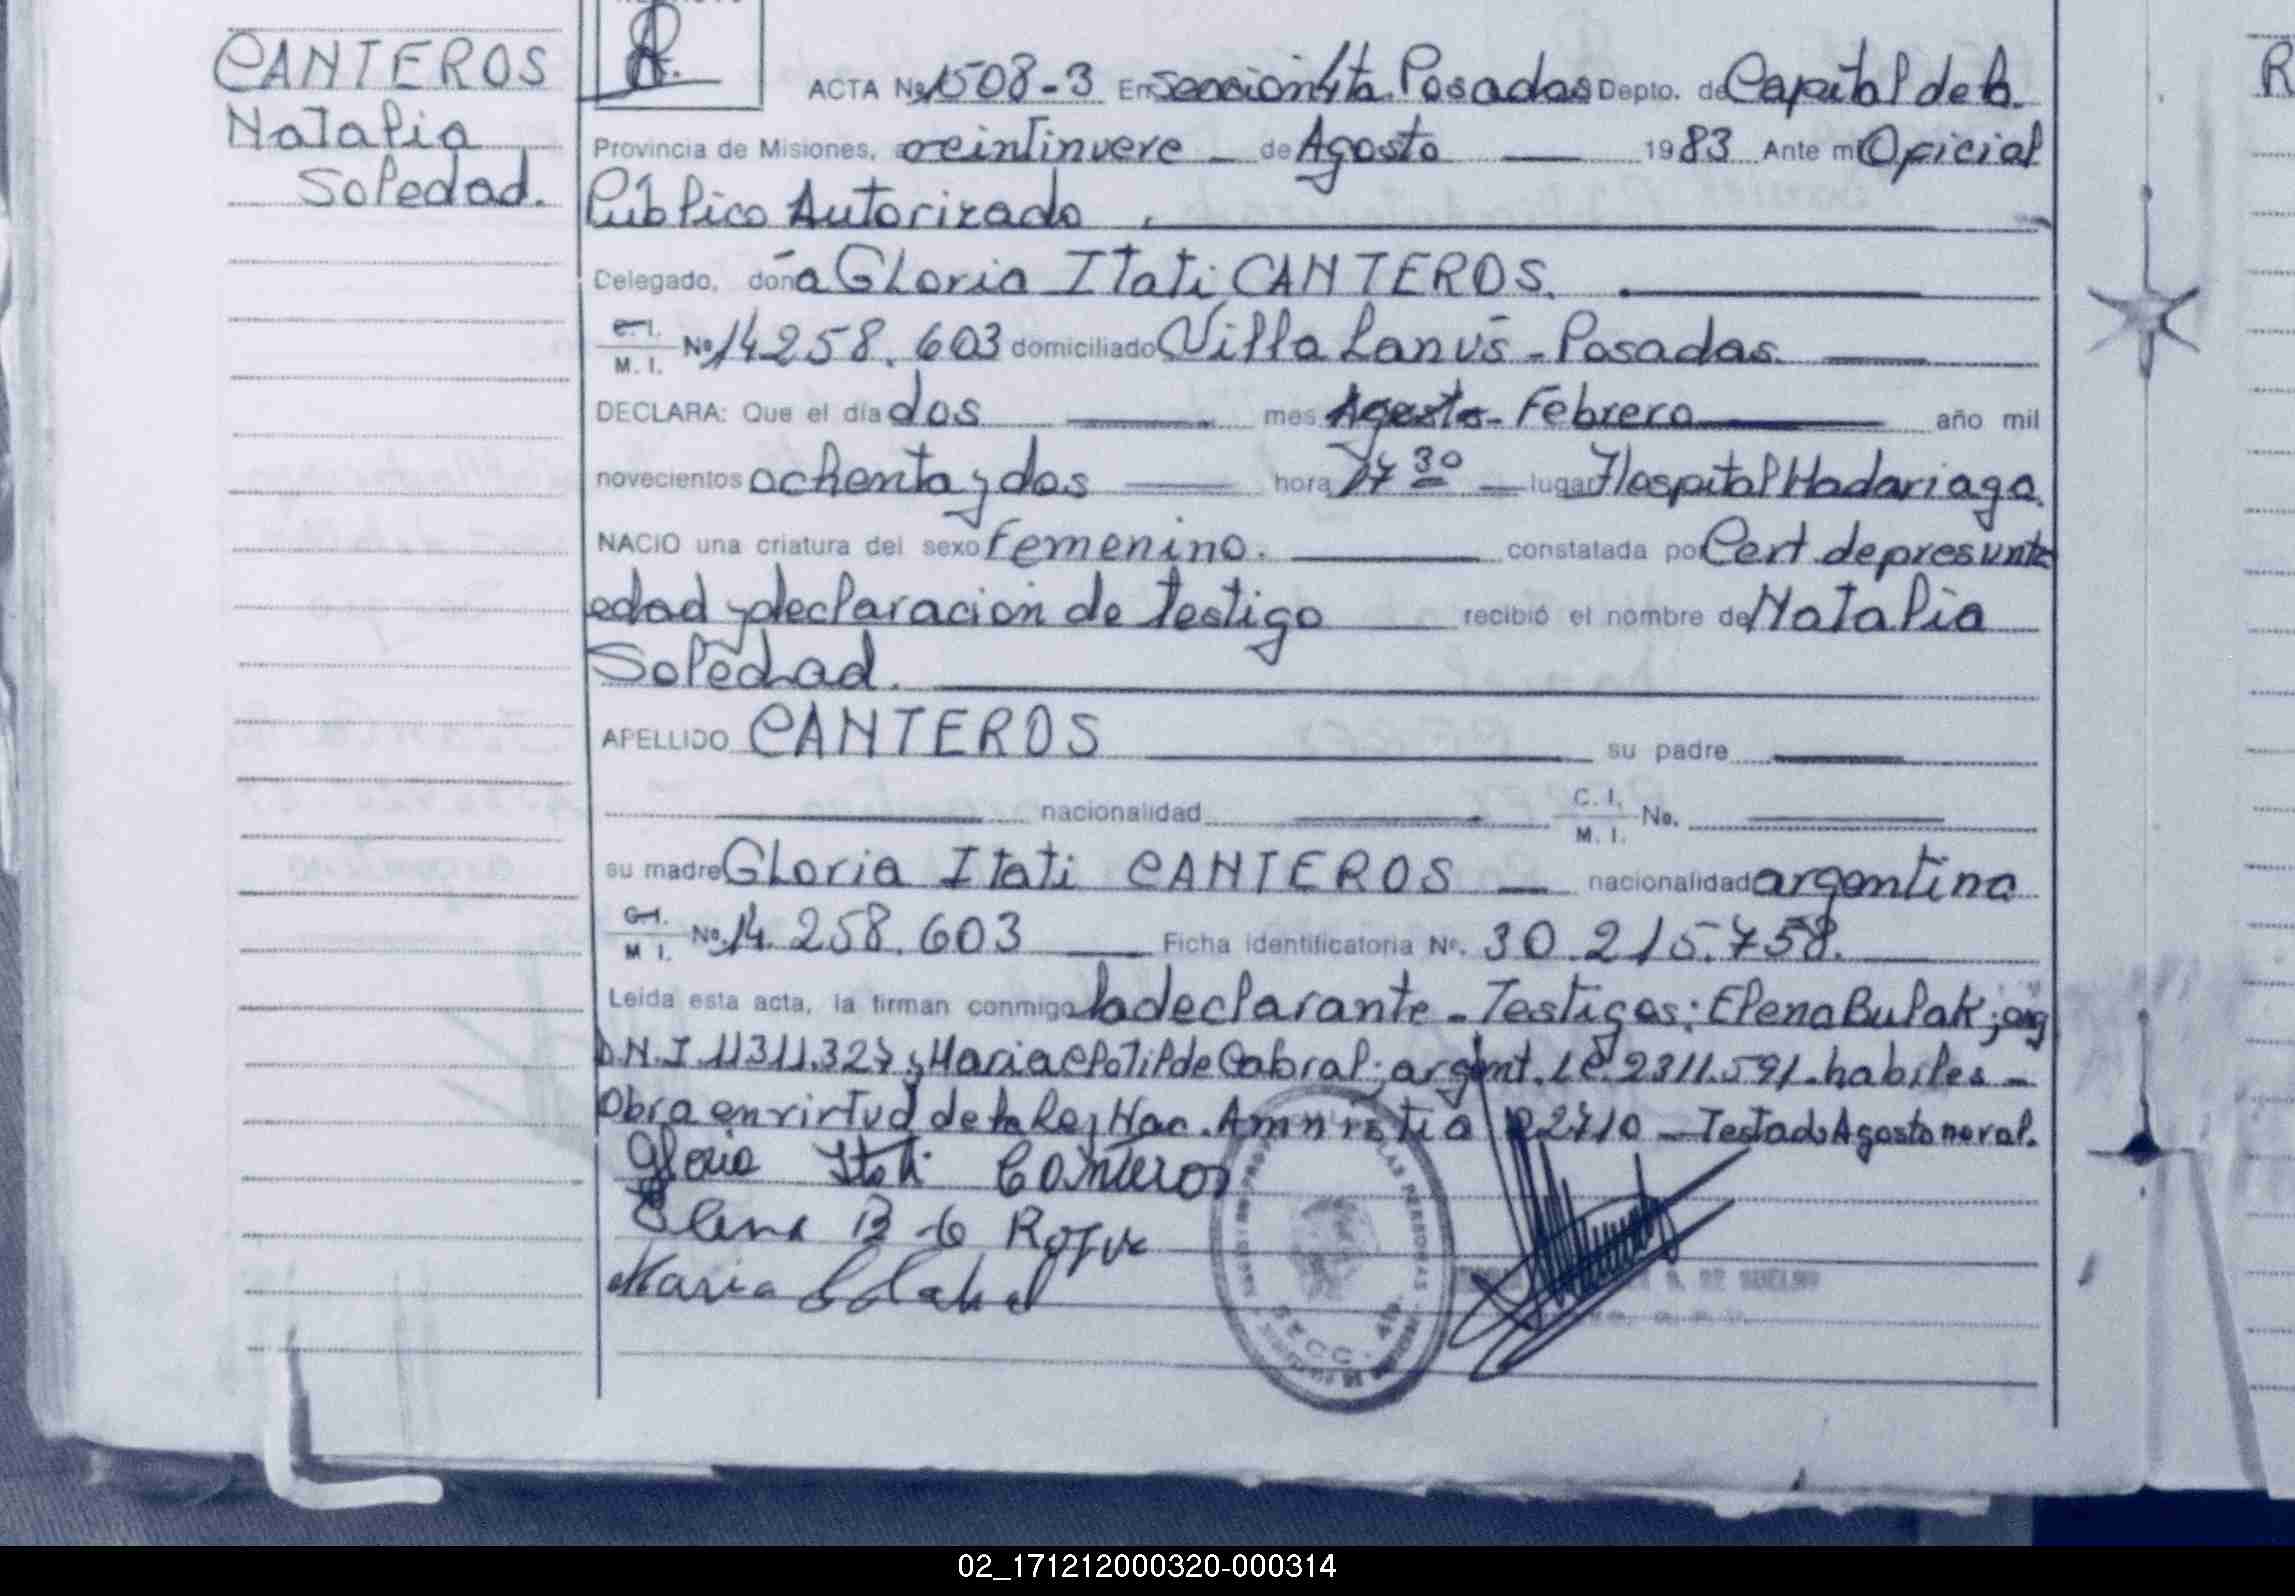 CANTEROS
Natalia
Soledad.
ACTA Nº 1508-3 En Sección 4ta. Posadas Depto. de Capital de la
Provincia de Misiones, a veintinueve - de Agosto — 1983 Ante mi Oficial
Público Autorizado
Delegado, doña Gloria Itati CANTEROS.
C. I. M. I. Nº 14.258.603 domiciliado Villa Lanús - Posadas.
DECLARA: Que el día dos mes Agosto - Febrero año mil
novecientos ochenta y dos hora 17 30 lugar Hospital Madariaga.
NACIO una criatura del sexo Femenino. constatada por Cert de presunta
edad y declaración de testigo recibió el nombre de Natalia
Soledad.
APELLIDO CANTEROS su padre
nacionalidad C. I. M. I. No.
su madre Gloria Itati CANTEROS — nacionalidad argentina
C. I. M. I. Nº. 14.258.603 Ficha identificatoria Nº. 30.215.758.
Leída esta acta, la firman conmigo la declarante - Testigos: Elena Bulak; arg
D.N.I 11311.327 y Maria Clotilde Cabral; argent. L.C. 2311.591. habiles -
Obra en virtud de la Ley Nac. Amnistia 22710 - Testado Agosto no val.
Gloria Itati Canteros
Elena B de
Maria C Cabral
SECC. 4ta.
02_171212000320-000314